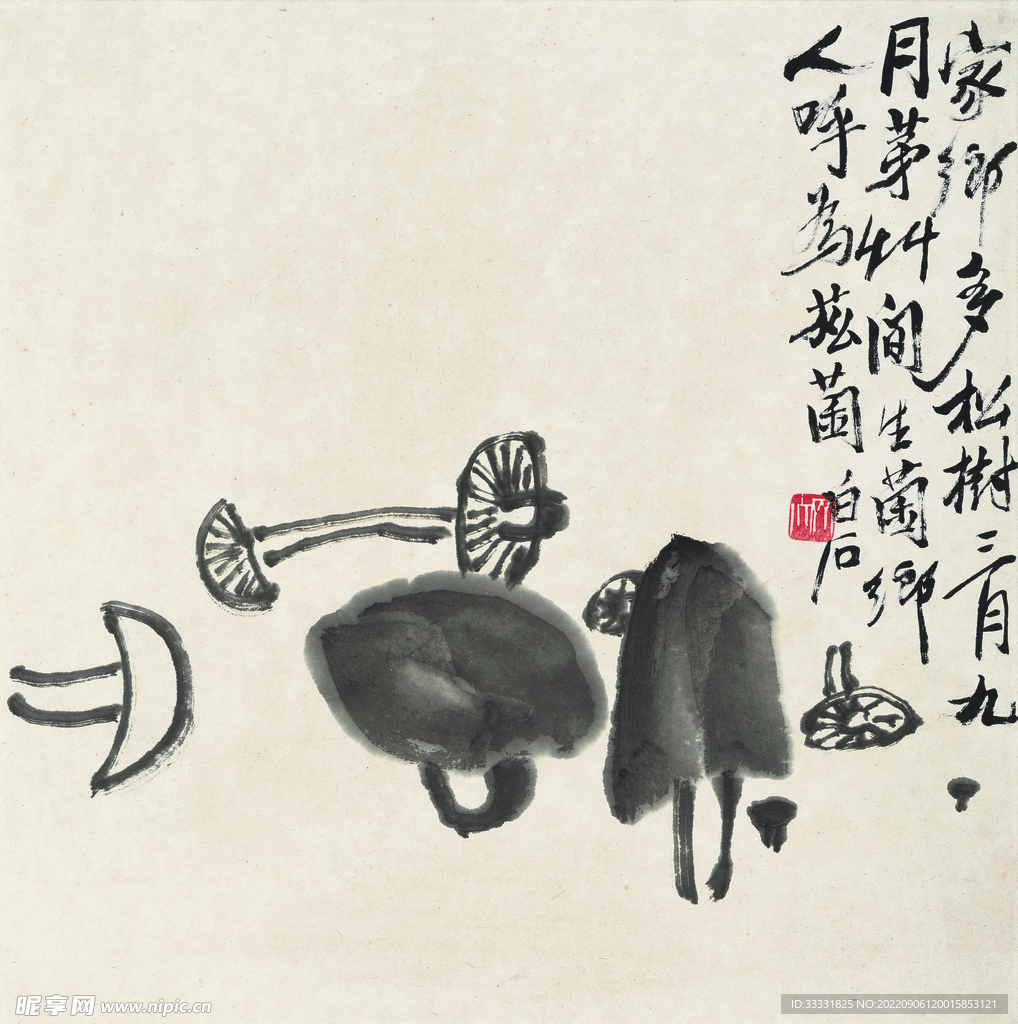 家鄉多松樹三月九
月茅艸間生菌鄉
人呼為菰菌
白石
昵享网 www.nipic.cn
ID:33331825 NO:20220906120015853121